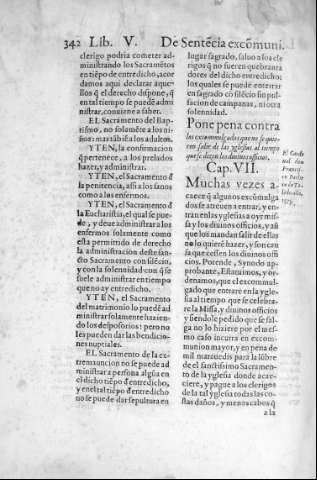 342 Lib. V. De Sentẽcia excõmuni.
clerigo podria cometer ad-
ministrando los Sacramẽtos
en tiẽpo de entredicho, acor
damos aqui declarar aque-
llos q̃ el derecho dispone, q̃
en tal tiempo se puedẽ admi
nistrar, conuiene a saber.
EL Sacramento del Bap-
tismo, no solamẽte a los ni-
ños: mas tãbiẽ a los adultos.
YTEN, la confirmacion
q̃ pertenece, a los prelados
hazer, y administrar.
YTEN, el Sacramento d̃
la penitencia, assi a los sanos
como a los enfermos.
YTEN, el Sacramento d̃
la Eucharistia, el qual se pue
de, y deue administrar a los
enfermos solamente como
esta permitido de derecho
la administracion deste san-
cto Sacramento con silẽcio,
y con la solenidad con q̃ se
suele administrar en tiempo
que no ay entredicho.
YTEN, el Sacramento
del matrimonio lo puedẽ ad
ministrar solamente hazien-
do los desposorios: pero no
les pueden dar las bendicio-
nes nuptiales.
EL Sacramento de la ex
tremauncion no se puede ad
ministrar a persona algũa en
el dicho tiẽpo d̃ entredicho,
y en el tal tiẽpo d̃ entredicho
no se puede dar sepultura en
lugar sagrado, saluo a los cle
rigos q̃ no fueren quebranta
dores del dicho entredicho:
los quales se puede enterrar
en sagrado cõ silẽcio sin pul
sacion de campanas, ni otra
solennidad.
Pone pena contra
los excomulgados que no se quie-
ren salir de las yglesias al tiempo
que se dizen los diuinos officios.
Cap. VII.
Muchas vezes a-
caece q̃ algunos excõmulga
dos se atreuen a entrar, y en-
tran en las yglesias a oyr mis-
sa y los diuinos officios, y aũ
que los mandan salir de ellas
no lo quierẽ hazer, y son cau
sa que cessen los diuinos offi-
cios. Porende, Synodo ap-
probante, Estatuimos, y or-
denamos, que el excomulga-
do que entrare en la ygle-
sia al tiempo que se celebra-
re la Missa, y diuinos officios
y siendole pedido que se sal-
ga no lo hiziere por el mes-
mo caso incurra en excom-
munion mayor, y en pena de
mil marauedis para la lũbre
del sanctissimo Sacramento
de la yglesia donde acae-
ciere, y pague a los clerigos
de la tal yglesia todas las co-
stas daños, y menoscabos q̃
a la